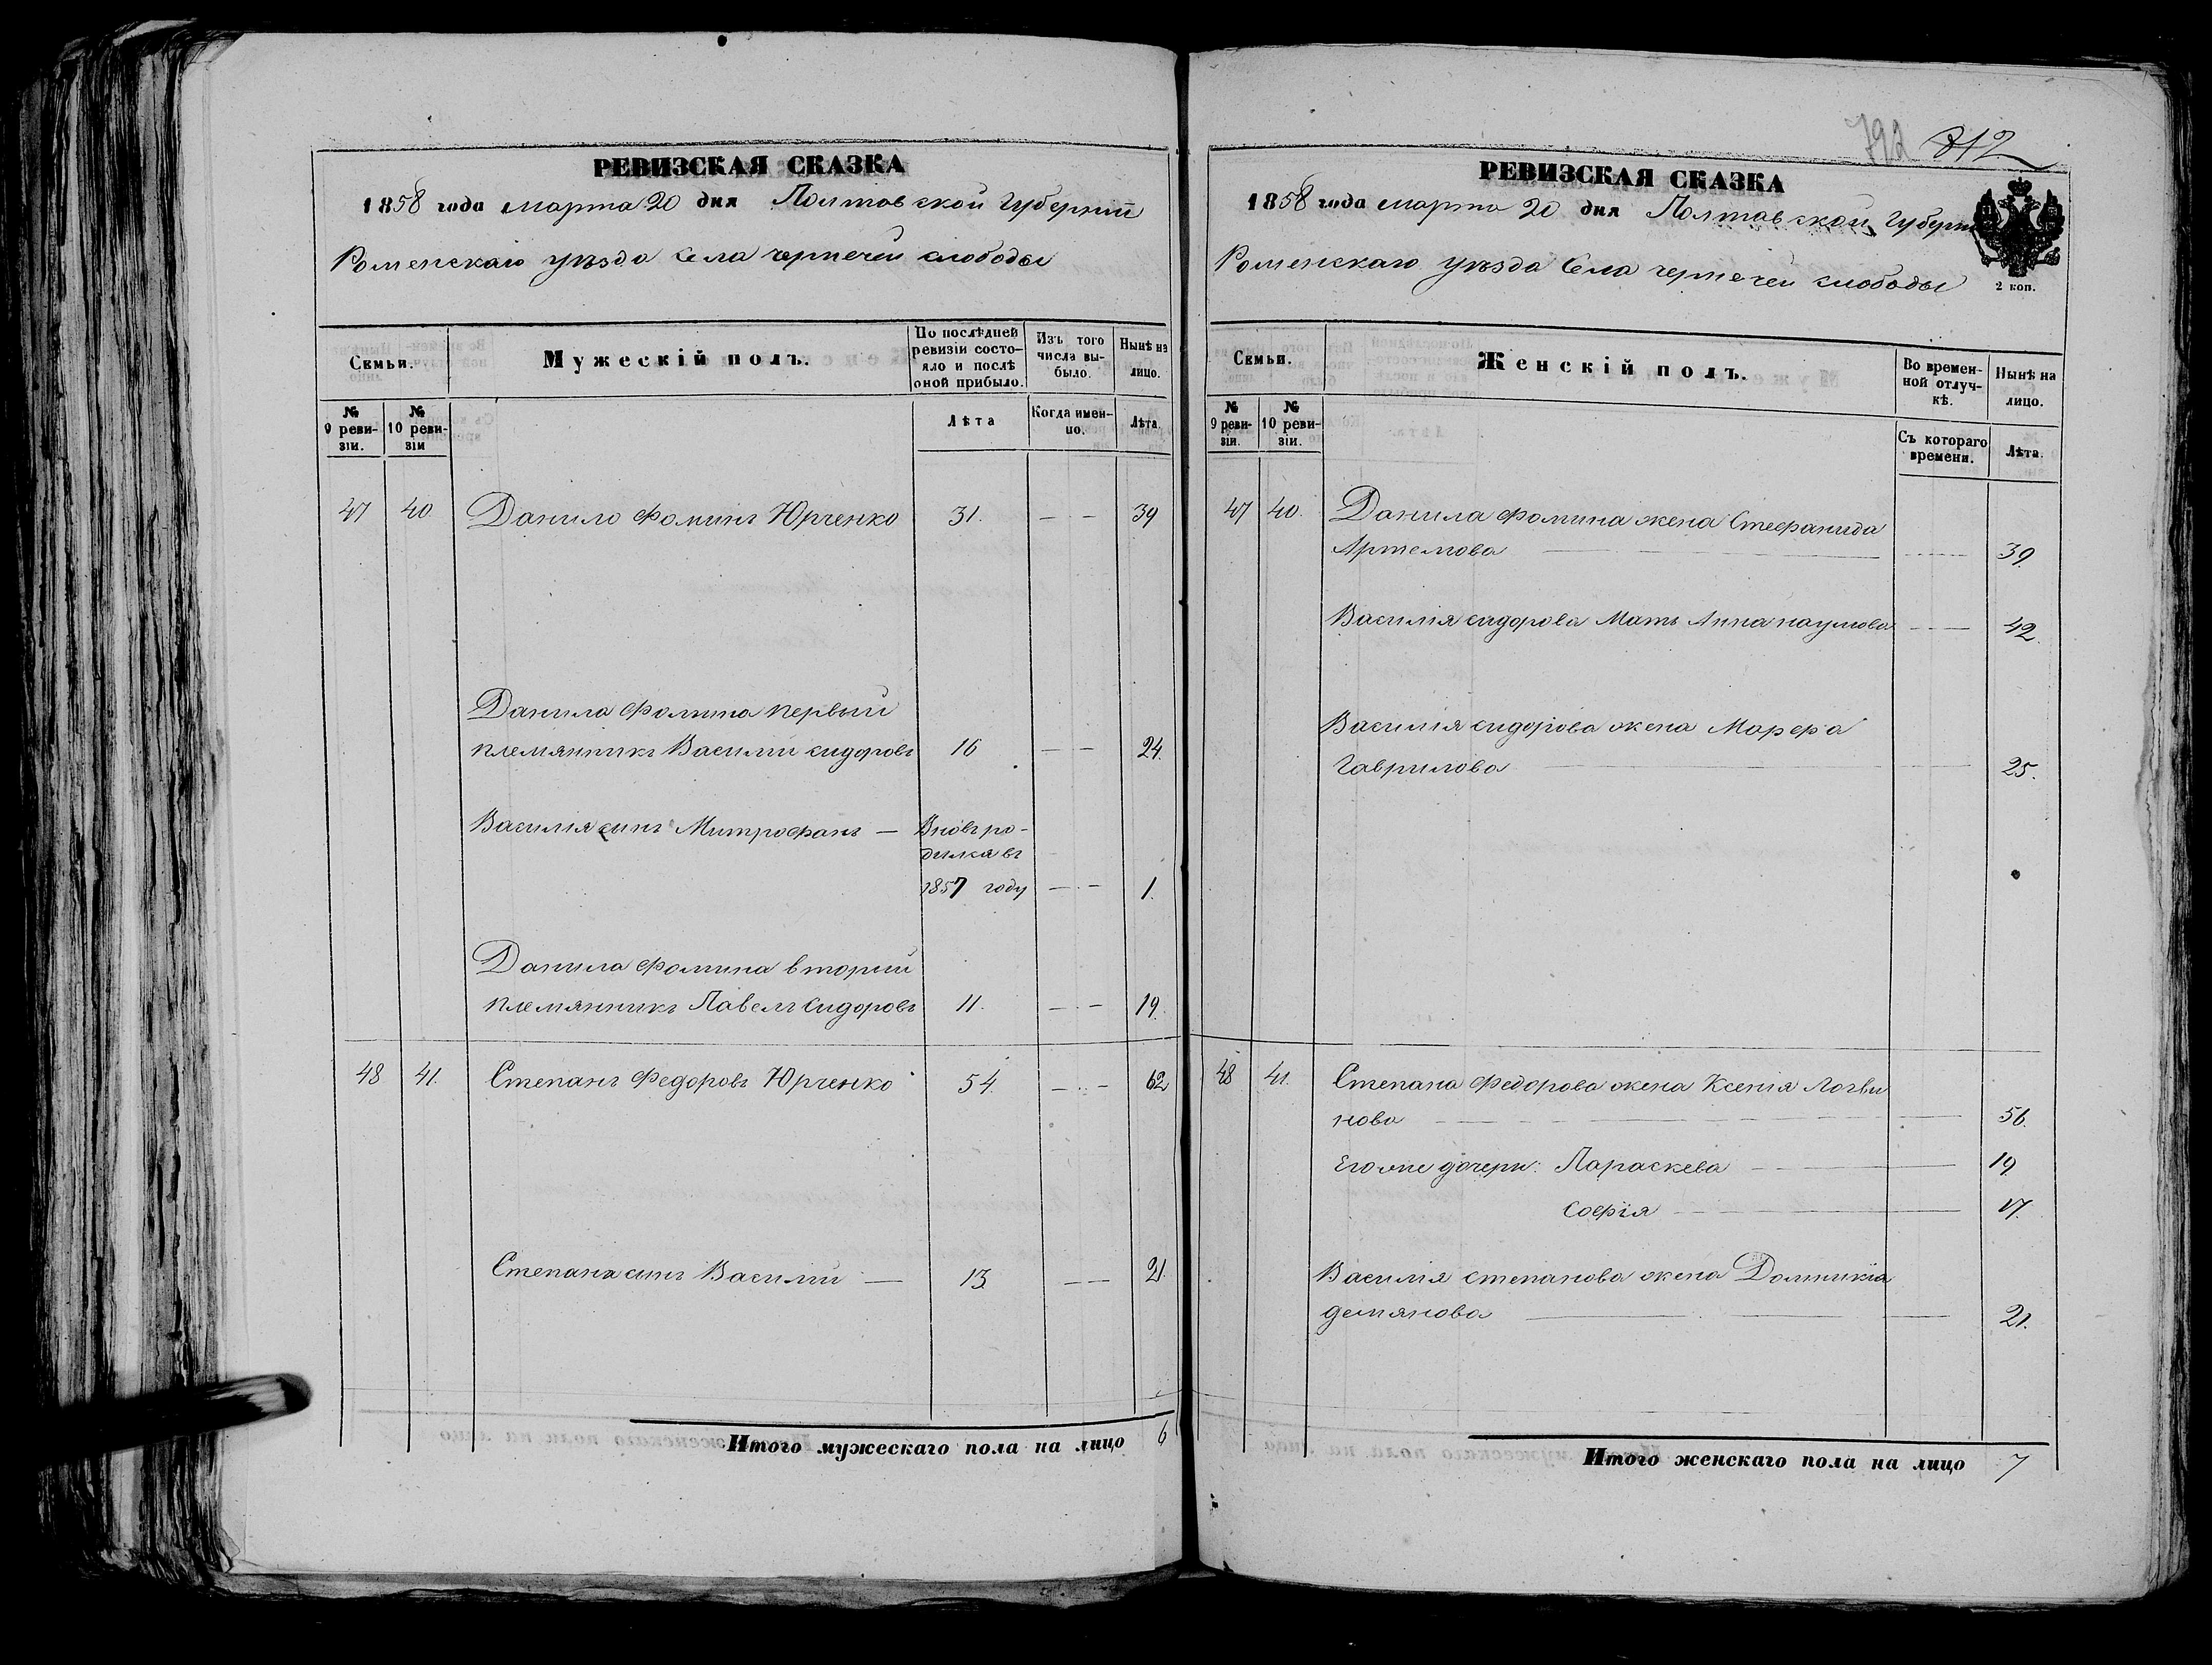 РЕВИЗСКАЯ СКАЗКА
1858 года марта 20 дня Полтавской Губерніи
Роменскаго уезда Села чернечей слободы
Семьи.
Мужескій полъ.
По послѣдней ревизіи состояло и послѣ оной прибыло.
Изъ того числа выбыло.
Нынѣ на лицо.
№ 9 ревизіи.
№ 10 ревизіи
Лѣта
Когда именно.
Лѣта.
47 40. Данило Фоминъ Юрченко 31. — — 39
Данила Фомина первый
племянникъ Василий сидоровъ 16 — — 24.
Василія синъ Митрофанъ — Вновь ро-
дился въ
1857 году — — 1.
Данила Фомина вторий
племянникъ Павелъ Сидоровъ 11. — — 19.
48 41. Степанъ Федоровъ Юрченко 54. — — 62
Степана синъ Василий — 13. — — 21.
Итого мужескаго пола на лицо 6
792 312
РЕВИЗСКАЯ СКАЗКА
1858 года марта 20 дня Полтавской Губерн
2 коп.
Роменскаго уезда Села чернечей слободы
Семьи.
Женскій полъ.
Во временной отлучкѣ.
Нынѣ на лицо.
№ 9 ревизіи.
№ 10 ревизіи.
Съ котораго времени.
Лѣта.
47 40. Данила Фомина жена Стефанида
Артемова — — 39
Василія сидорова Мать Анна наумова — 42.
Василія сидорова жена Марфа
Гаврилова — — 25.
48 41. Степана Федорова жена Ксенія Логви
нова — — 56.
Его же дочери: Параскева — 19
Софія — 17.
Василія степанова жена Домникіа
демянова — — 21.
Итого женскаго пола на лицо 7